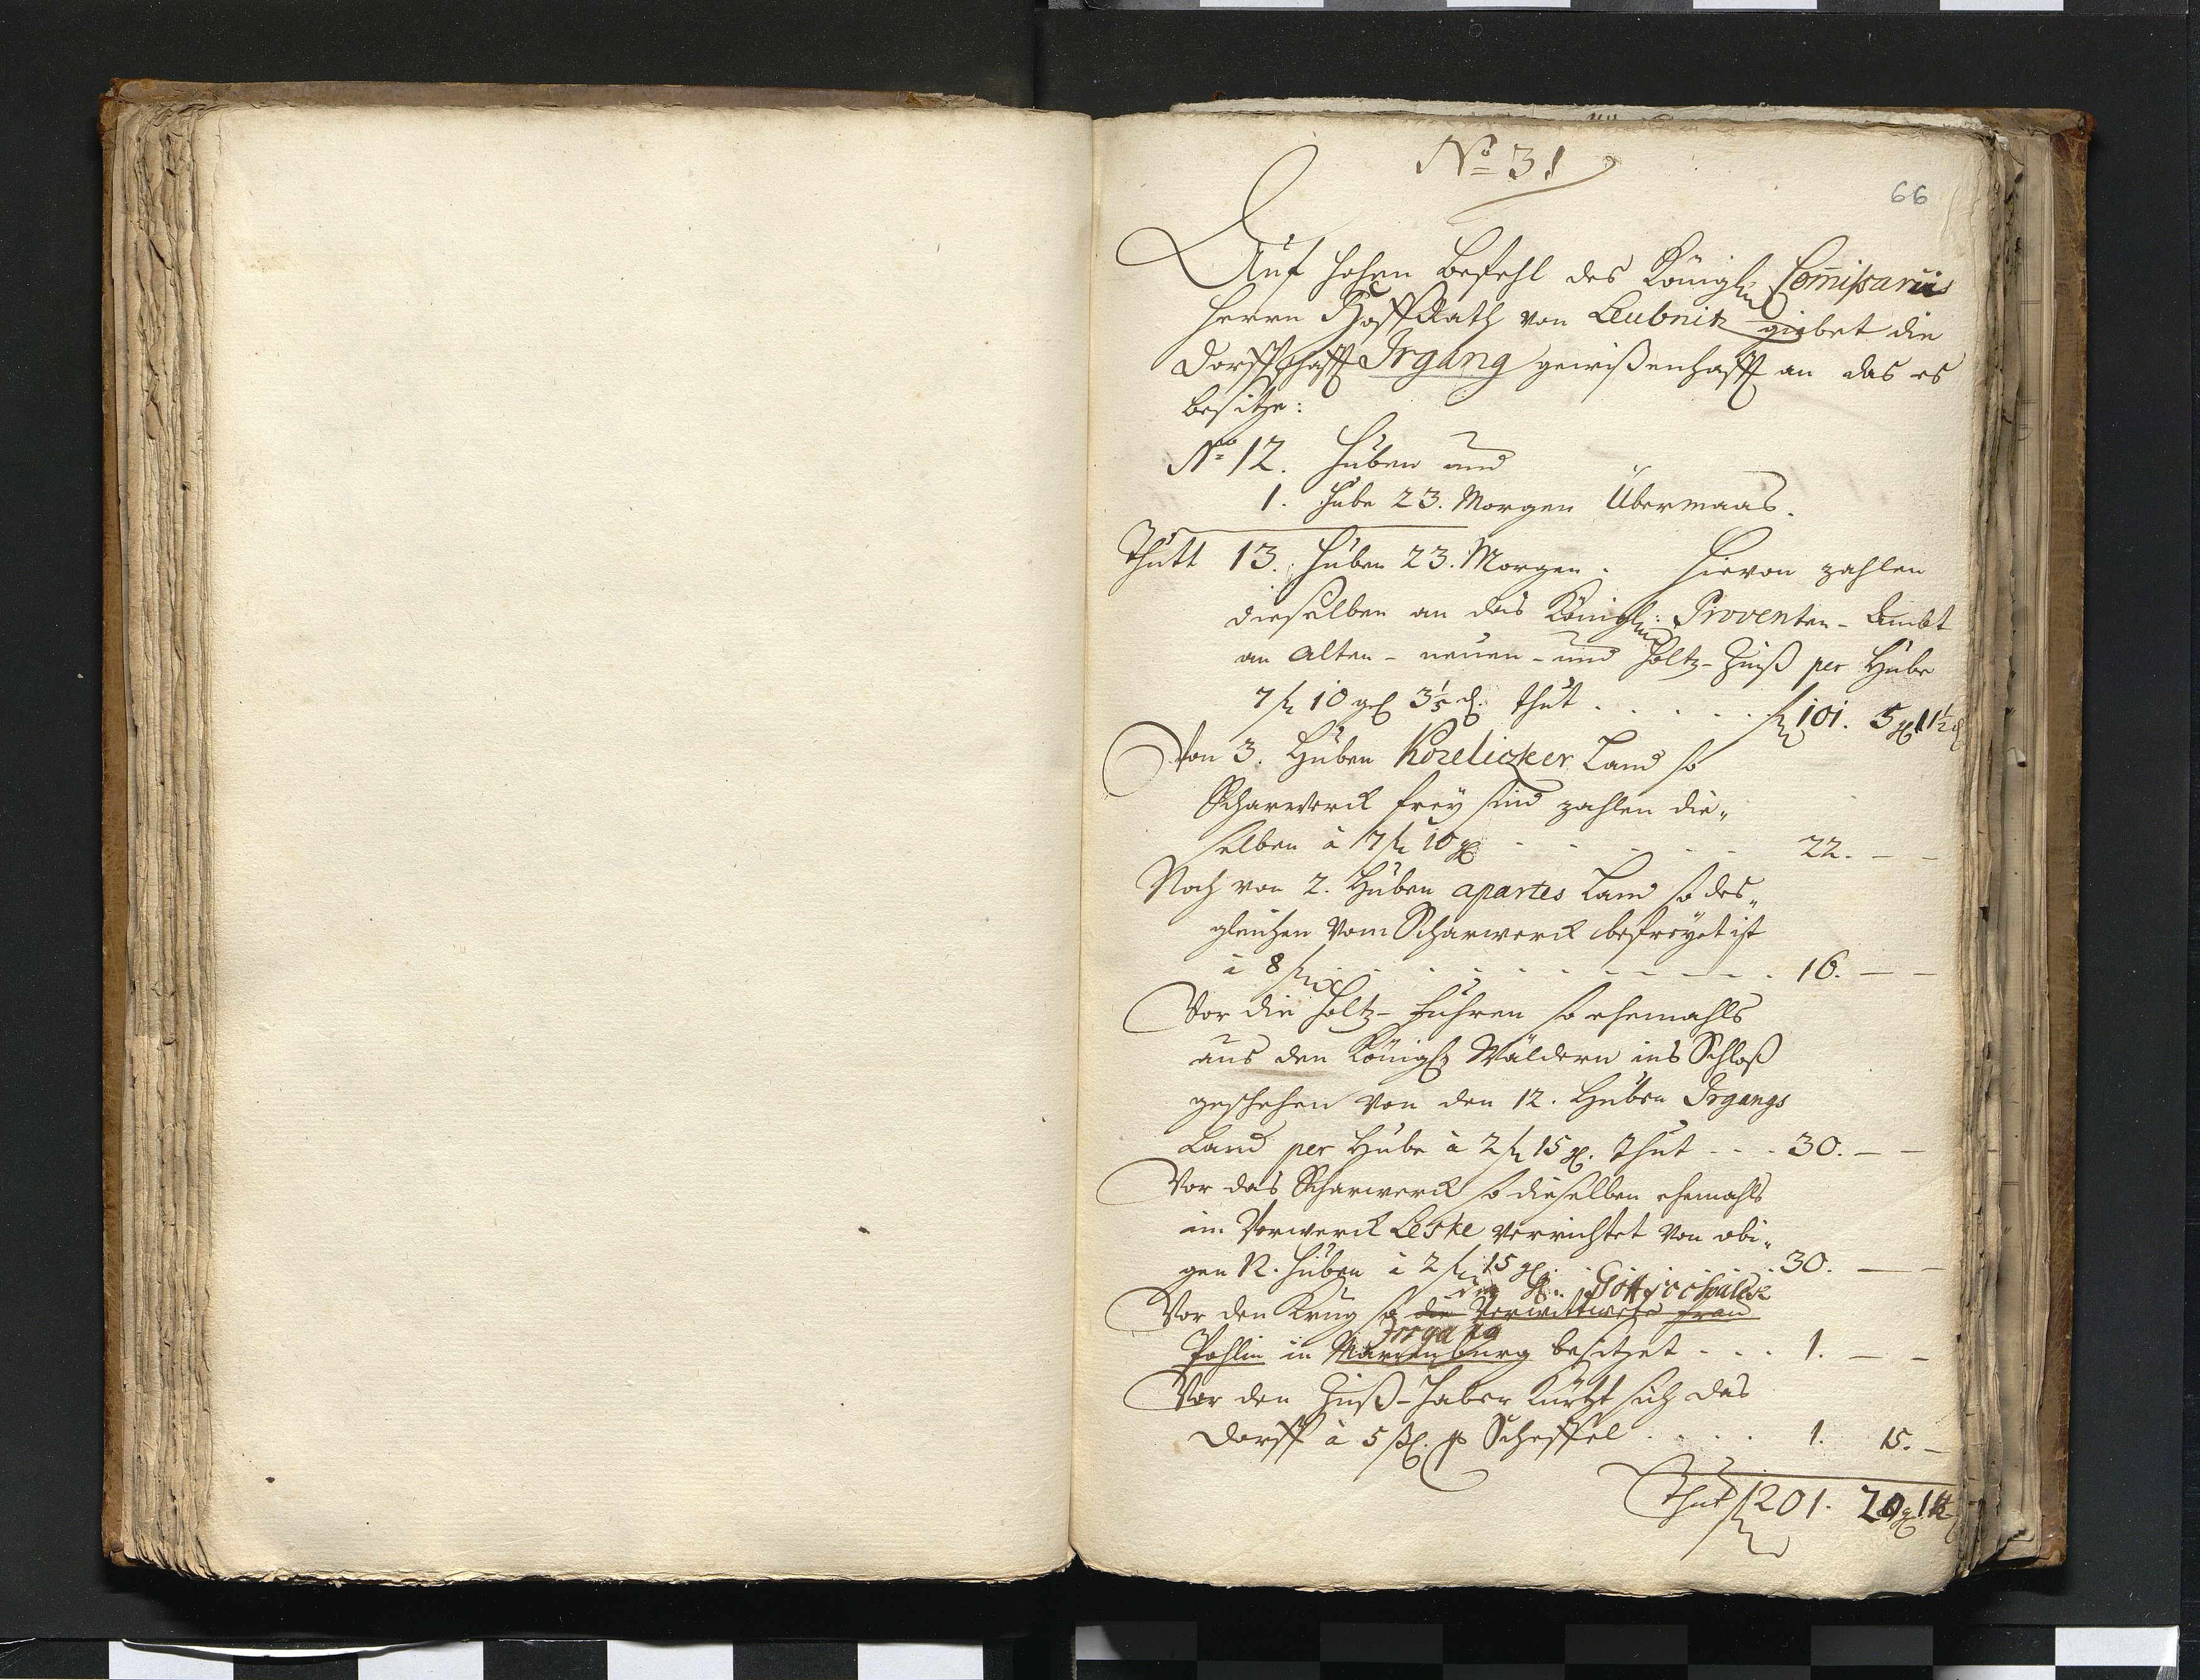 No 31
66
Auf hohen Befehl des Königl: Com̄issarii
Herrn HoffRath von Leubnitz giebet die
Dorffschafft Irgang gewißenhafft an das es
besitze:
No 12. Huben und
1. Hube 23. Morgen Übermaas.
Thutt 13. Huben 23. Morgen. Hievon zahlen
dieselben an das Königl: Proventen-Ambt
an alten- neuen- und Holtz-Zinß per Hube
7 fl 10 gl 3 1/5 d. thut . . . . . fl 101. 5 gl 1 1/2 d
Von 3. Huben Kozeliczker Land so
Scharwerck frey sind zahlen die„
selben à 7 fl 10 gl - - - - - 22. — —
Noch von 2. Huben apartes Land so des„
gleichen vom Scharwerck befreyet ist
à 8 fl - - - - - - - - 16. — —
Vor die Holtz-Fuhren so ehemahls
aus den Königl: Wäldern ins Schloß
geschehen von den 12. Huben Irgangs
Land per Hube à 2 fl 15 gl. thut - - - 30. — —
Vor das Scharwerck so dieselben ehemahls
im Vorwerck Leske verrichtet von obi„
gen 12. Huben à 2 fl 15 gl. . . . . 30. — —
der H. Gottschalck
Vor den Krug so die Verwittwete Frau
Irrgang
Pohlin in Marienburg besitzet - - - 1. — —
Vor den Zinß-Haber kürtzt sich das
Dorff à 5 ßl. p Scheffel . . . . 1. 15. —
Thut fl 201. 20 gl 1 1/2